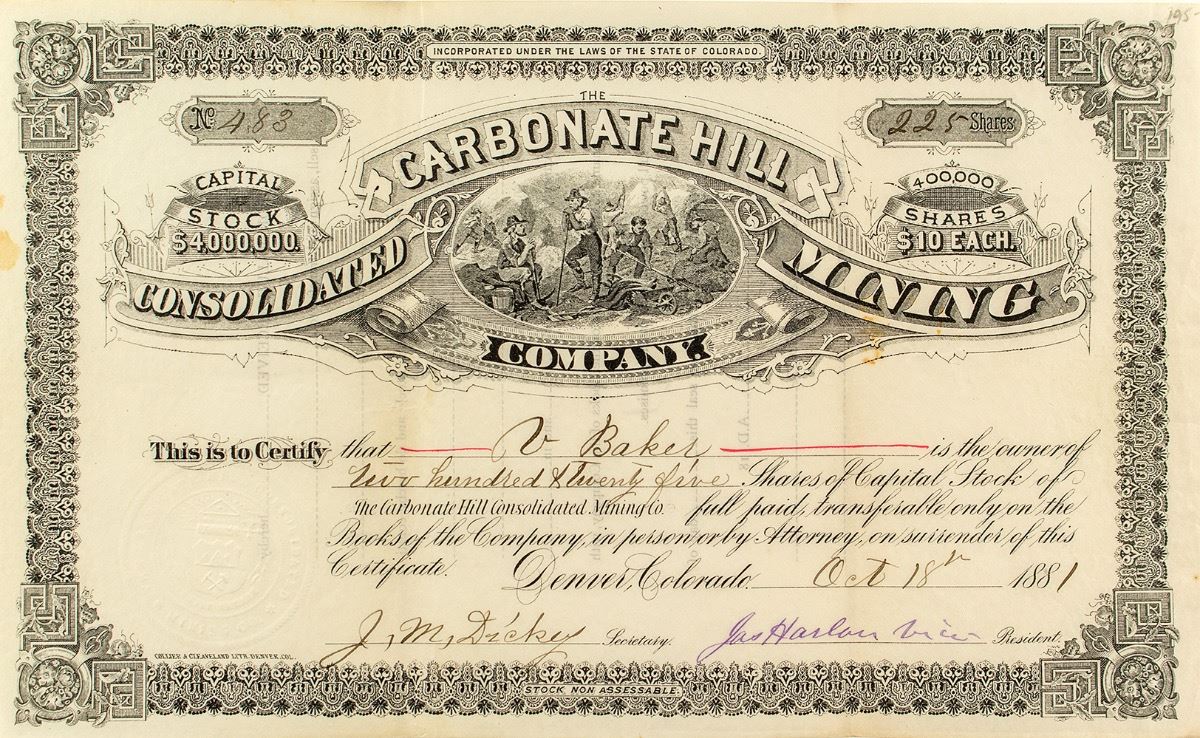 195-
INCORPORATED UNDER THE LAWS OF THE STATE OF COLORADO.
No 483
225 Shares
THE
CARBONATE HILL
CONSOLIDATED
MINING
COMPANY.
CAPITAL
STOCK
$4,000,000.
400,000
SHARES
$10 EACH.
This is to Certify that V Baker is the owner of
Two hundred & twenty five Shares of Capital Stock of
The Carbonate Hill Consolidated Mining Co. full paid, transferable only on the
Books of the Company, in person or by Attorney, on surrender of this
Certificate. Denver, Colorado. Oct 18th 1881
J. M. Dicky Secretary. Jas Harlan Vice President.
COLLIER & CLEAVELAND LITH. DENVER, COL.
STOCK NON ASSESSABLE.